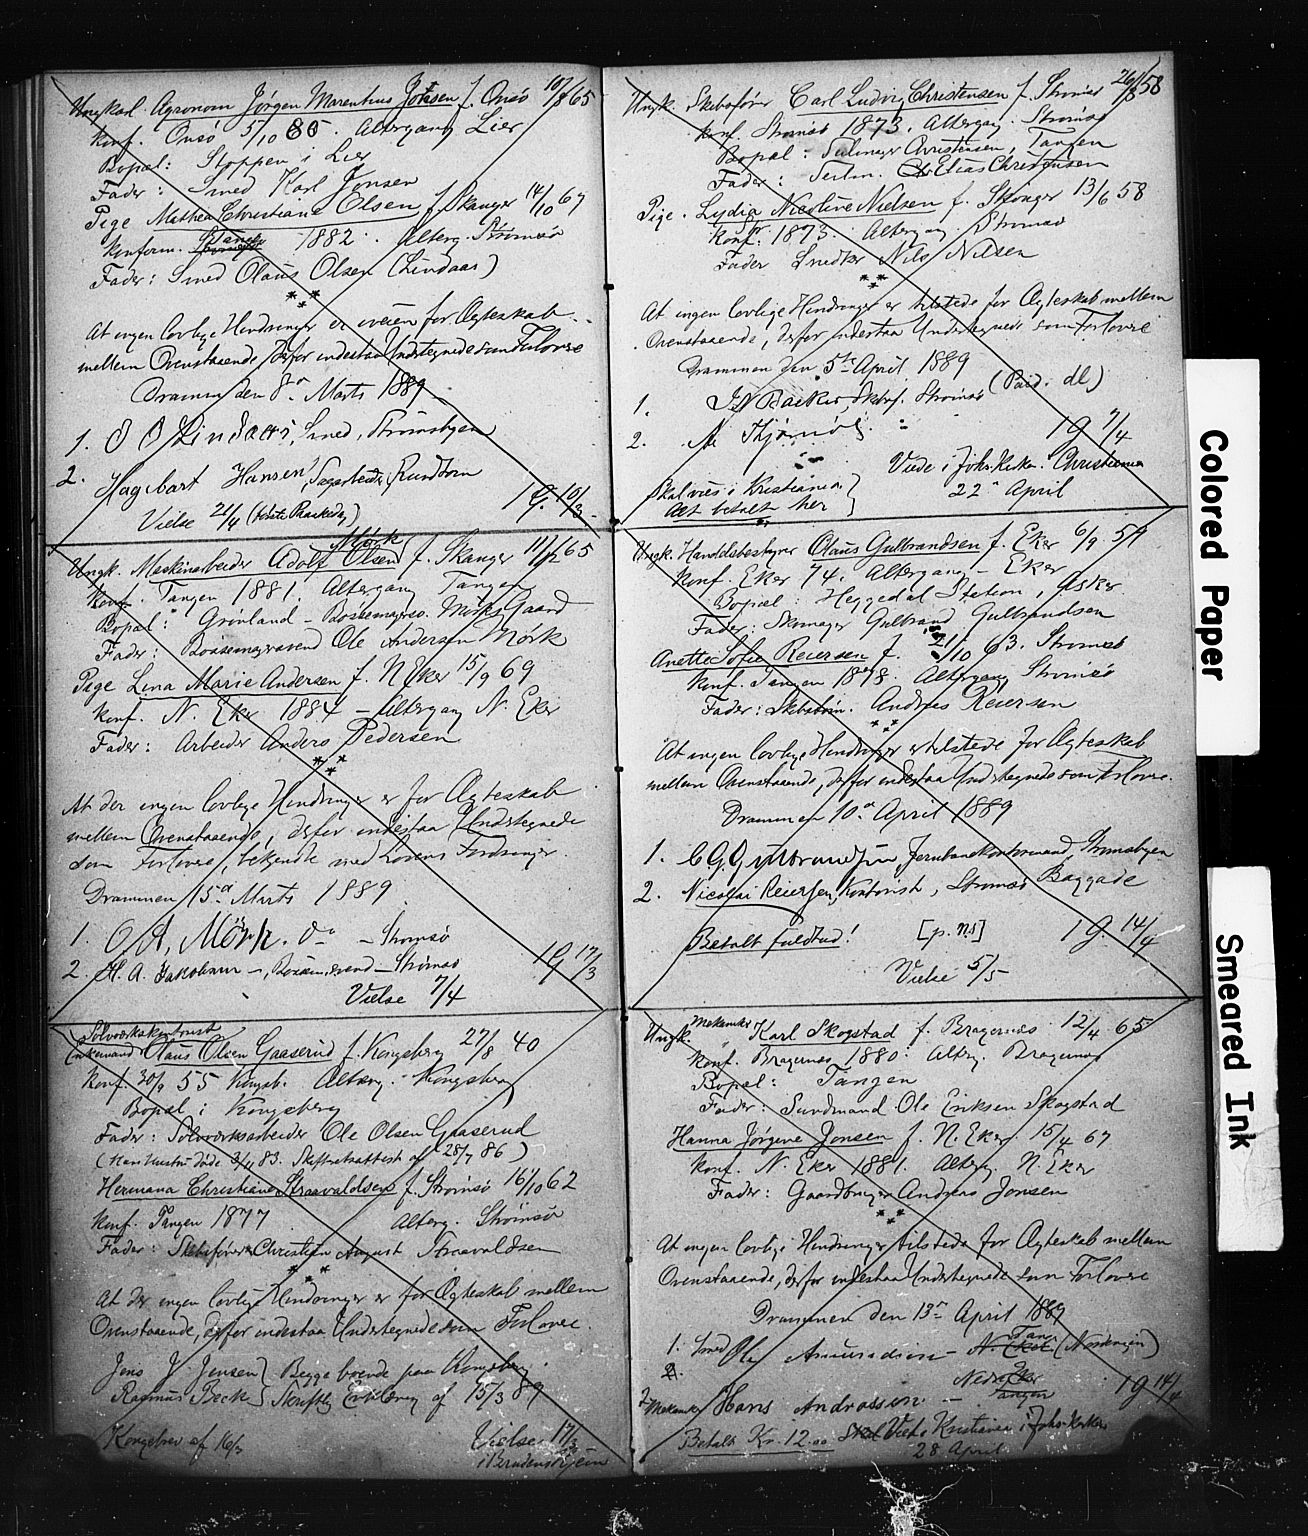 Ungkarl Agronom Jørgen Marentius Jonsen f. Onsø 10/8 65
Konf. Onsø 5/10 80. Altergang Lier
Bopæl: Stoppen i Lier
Fader: Smed Karl Jonsen
Pige Mathea Christiane Olsen f. Skanger 14/10 67
Konform. Tangen 1882. Alterg. Strømsø
Fader: Smed Olaus Olsen (Lindaas)
At ingen lovlige Hindringer er iveien for Ægteskab
mellem Ovenstaaende, derfor indestaa Undertegnede som Forlovere
Drammen den 8de Marts 1889
1. O Olindaas, Smed, Strømsbyen
2. Hagbart Hansen, Sagarbeider, Rundtom
Vielse 21/4 (første Paaskedag) 1 G. 10/3
Mørk
Ungk. Maskinarbeider Adolf Olsen f. Skanger 11/12 65
Konf. Tangen 1881. Altergang Tangen
Bopæl: Grønland - Bøssemager Mørks Gaard
Fader: Bøssemagersvend Ole Andersen Mørk
Pige Lina Marie Andersen f. N. Eker 15/9 69
Konf. N. Eker 1884 - Altergang N. Eker
Fader: Arbeider Anders Pedersen
At der ingen lovlige Hindringer er for Ægteskab
mellem Ovenstaaende, derfor indestaa Undertegnede
som Forlovere, bekjendte med Lovens Fordringer.
Drammen 15de Marts 1889
1. O A. Mørk. - Strømsø
2. H. A. Jakobsen - Strømsø 1 G 17/3
Vielse 7/4
Sølvværkskontorist
Enkemand Claus Olsen Gaaserud f. Kongsberg 27/8 40
Konf. 30/9 55 Kongsb. Alterg. Kongsberg
Bopæl i Kongsberg
Fader: Sølvværksarbeider Ole Olsen Gaaserud
(Hans Hustru døde 3/11 83. Skifteretsattest af 28/7 86)
Hermana Christiane Straavaldsen f. Strømsø 16/10 62
Konf. Tangen 1877 Alterg. Strømsø
Fader: Skibsfører Christian August Straavaldsen
At der ingen lovlige Hindringer er for Ægteskab mellem
Ovenstaaende, derfor indestaa Undertegnede som Forlovere.
Jens J Jensen } Begge boende paa Kongsberg.
Rasmus Beck } Skriftlig Erklæring af 15/3 89
Kongebrev af 16/3 Vielse 17/3
i Brudens Hjem
Ungk. Skibsfører Carl Ludvig Christensen f. Strømsø 26/8 58
Konf. Strømsø 1873. Altergang. Strømsø
Bopæl: Seilmager Christensen, Tangen
Fader: Seilm. Elias Christensen
Pige. Lydia Nicoline Nielsen f. Skoger 13/6 58
Konf. 1873. Altergang. Strømsø
Fader Snedker Nils Nilsen
At ingen lovlige Hindringer er tilstede for Ægteskab mellem
Ovenstaaende, derfor indestaa Undertegnede som Forlovere
Drammen den 5te April 1889
1. Skibsf. Strømsø
2. 1 G 7/4
Skal vies i Kristiania } Viede i Johs. Kirken. Christiania
Alt betalt her } 22de April
Ungk. Handelsbestyrer Olaus Gulbrandsen f. Eker 6/9 59
Konf. Eker 74. Altergang - Eker
Bopæl: Heggedal Station, Asker
Fader: Skomager Gulbrand Gulbrandsen
Anette Sofie Reiersen f. 21/10 63. Strømsø
Konf. Tangen 1878. Altergang Strømsø
Fader: Skibstøm. Andreas Reiersen
At ingen lovlige Hindringer er tilstede for Ægteskab
mellem Ovenstaaende, derfor indestaa Undertegnede som Forlovere.
Drammen 10de April 1889
1. C G Gulbrandsen Jernbanekontormand, Strømsbyen
2. Nicolai Reiersen, Kontorist, Strømsø
Betalt fuldtud! 1 G. 14/4
Vielse 5/5
Ungk. Mekaniker Karl Skogstad f. Bragernes 12/4 65
Konf. Bragernes 1880. Alterg. Bragernes
Bopæl: Tangen
Fader: Sundmand Ole Eriksen Skogstad
Hanna Jørgine Jonsen f. N. Eker 15/4 67
Konf. N. Eker 1881. Alterg. N. Eker
Fader: Gaardbruger Andreas Jonsen
At ingen lovlige Hindringer tilstede for Ægteskab mellem
Ovenstaaende, derfor indestaa Undertegnede som Forlovere
Drammen den 13de April 1889
1. Smed Ole Amundsen - N. Eker
2. Mekaniker Hans Andreassen - Nedre Eker 1 G 14/4
Betalt Kr. 12.00 Skal Viet i Kristiania i Johs. Kirken
28 April
Colored Paper
Smeared Ink